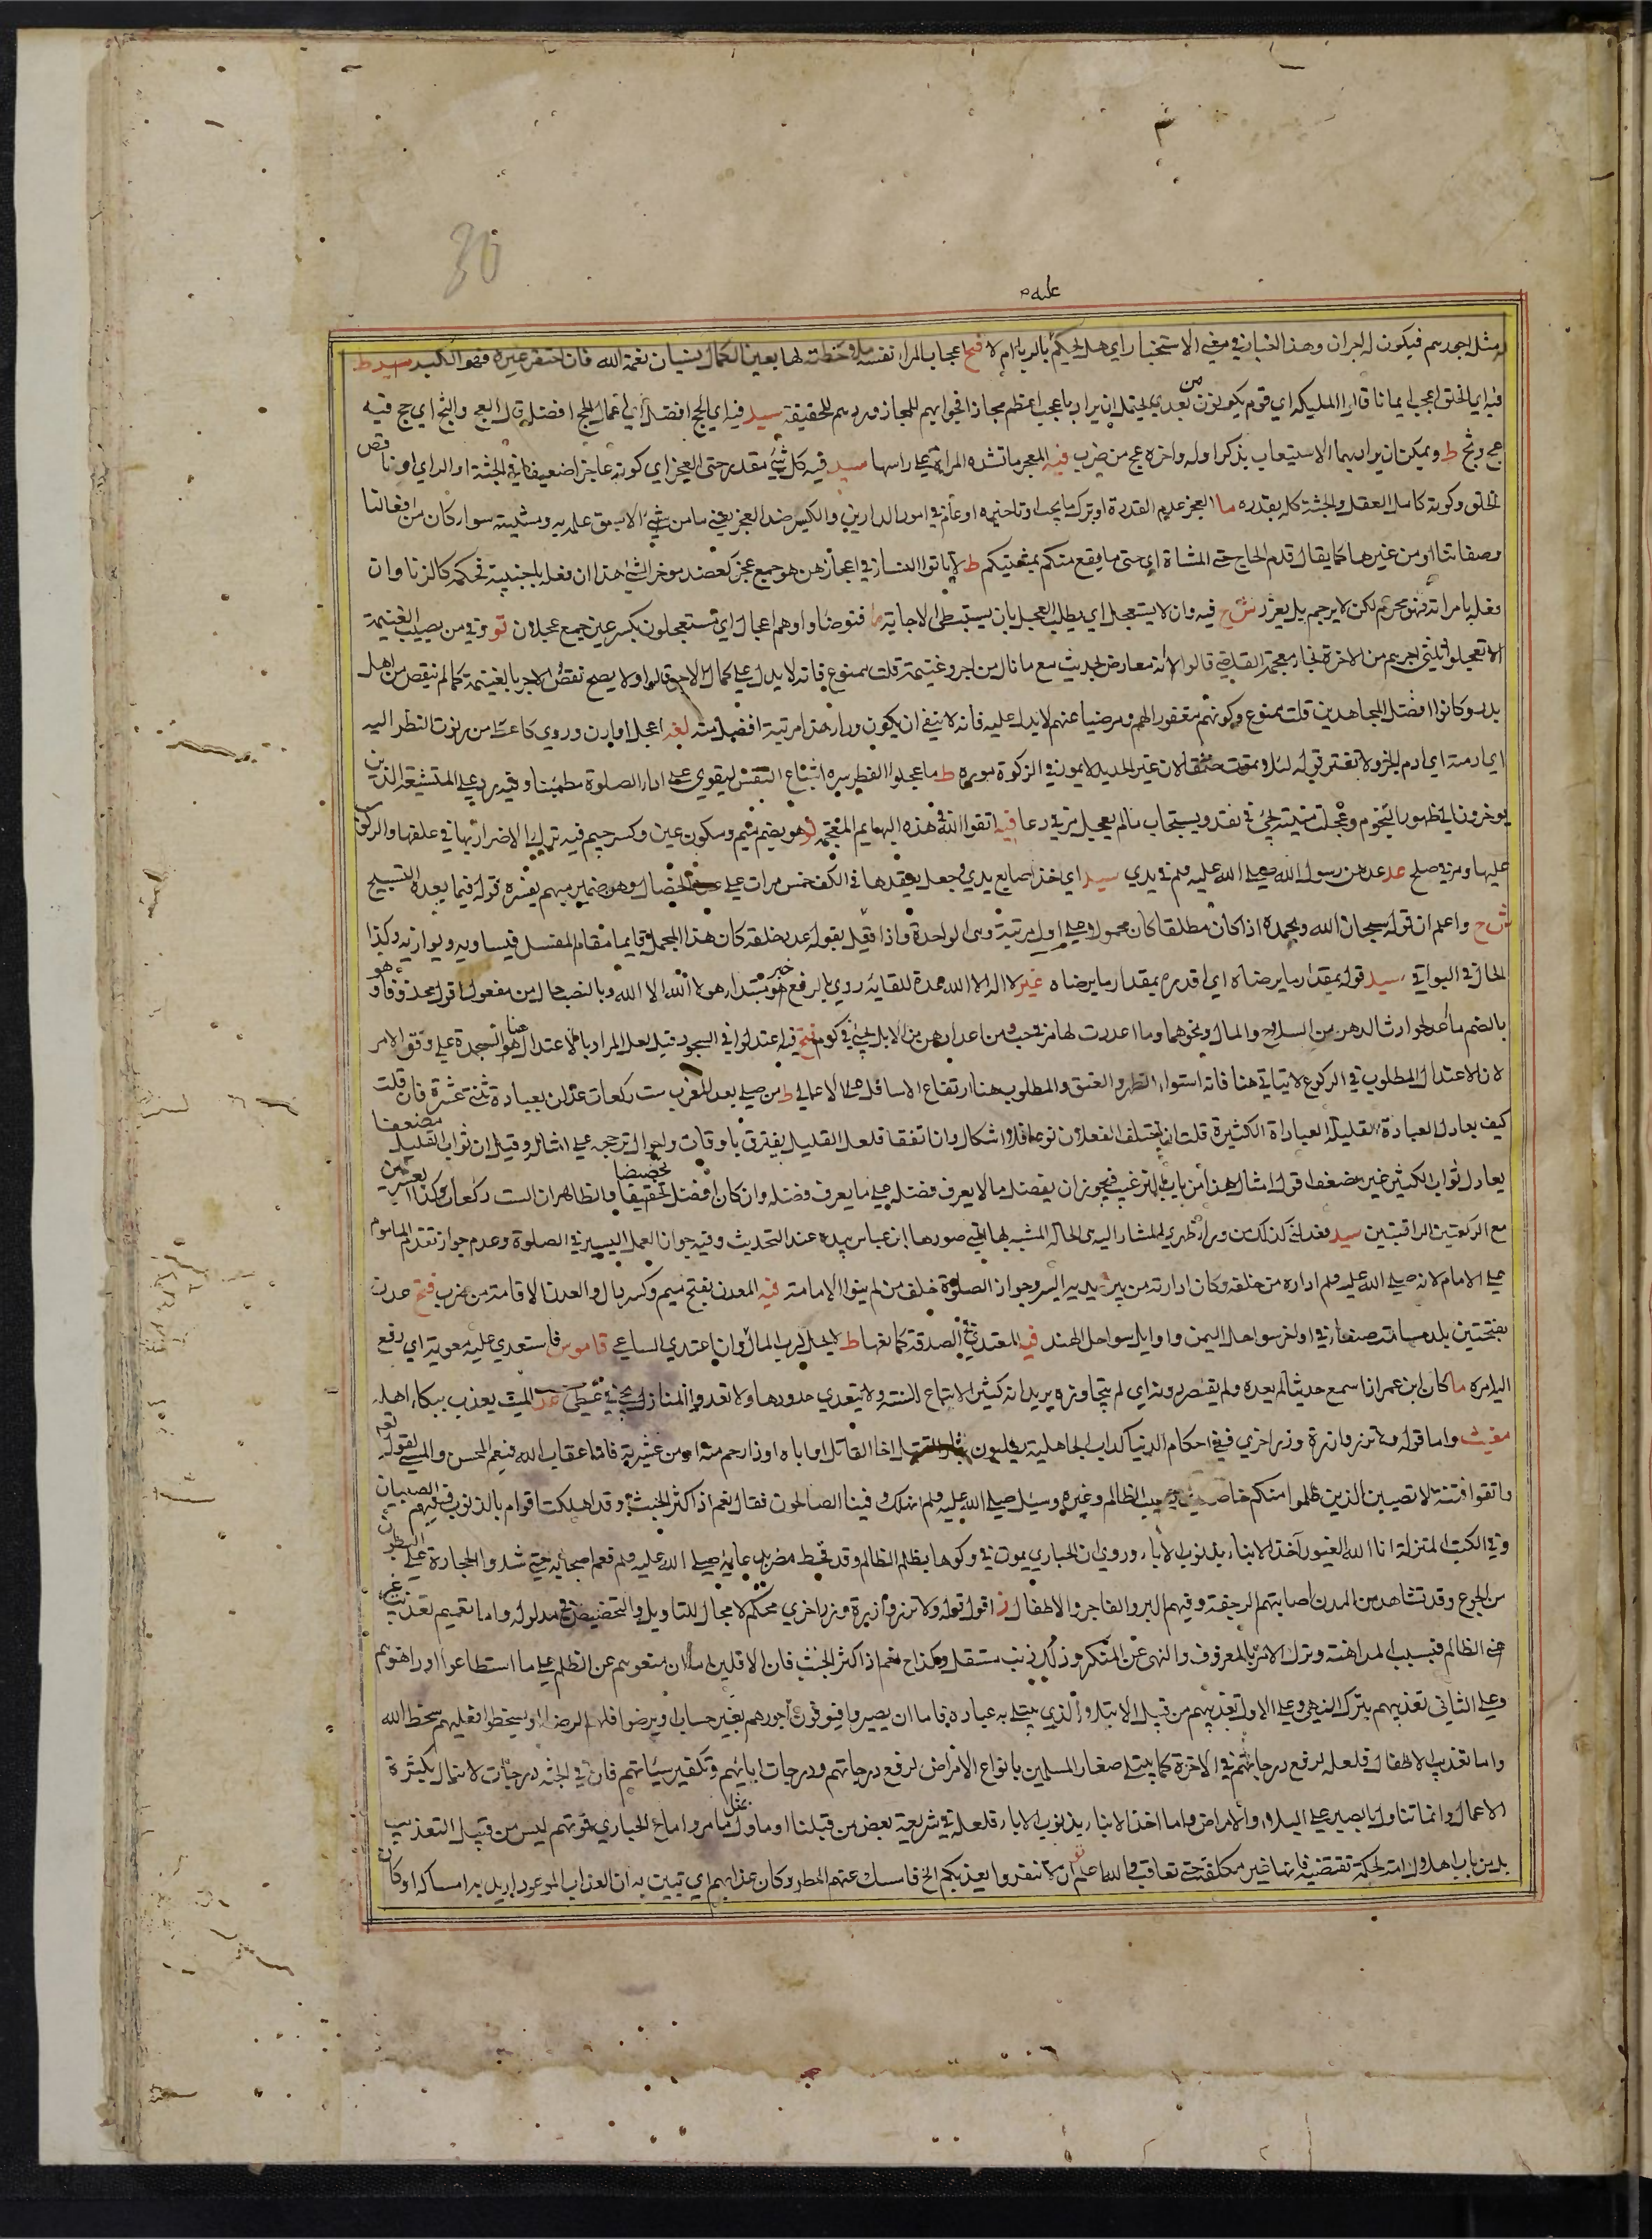 30
عليه م
مثل اجورهم فيكون له اجران وهذا الخبران في معنى الاستخبار اي هل لحيكم بالربا ام لا فتح اعجاب المرا نفسه ملاحظته لها بعين الكمال بنسيان نعمة الله فان احتقر غيره فهو الكبر سيد ط
فيه اي الخلق اعجب ايمانا قالوا المليكة اي قوم يكونون من بعدي يحتمل ان يراد باعجب اعظم مجازا فجوابهم للمجاز وردهم للحقيقة سيد فيه اي الحج افضل اي اعمال الحج افضل قال العج والثج اي حج فيه
عج وثج ط ويمكن ان يراد بهما الاستيعاب بذكر اوله واخره عج من ضرب فيه المعجر ما تشده المراة على راسها سيد فيه كل شيء بقدر حتى العجز اي كونه عاجزا ضعيفا في الجثة او الراي او ناقص
الخلق وكونه كامل العقل والجثة كله بقدره ما العجز عدم القدرة او ترك ما يجب او تاخيره او عام في امور الدارين والكيس ضد العجز يعني ما من شيء الا سبق علمه به ومشيته سواء كان من افعالنا
وصفاتنا او من غيرها كما يقال قدم الحاج حتى المشاة اي حتى ما يقع منكم بمشيتكم ط لا ياتوا النساء في اعجازهن هو جمع عجز كعضد موخر الشيء هذا ان فعل باجنبية فحكمه كالزنا وان
فعل بامراته فهو محرم لكن لا يرجم بل يعزر ش ح فيه وان لا يستعجل اي يطلب العجل بان يستبطى الاجابة ما فتوضاوا وهم اعجال اي مستعجلون بكسر عين جمع عجلان تو وفي من يصيب الغنيمة
الا تعجلوا ثلثي اجرهم من الاخرة قالوا لانه معارض لحديث مع ما نال من اجر وغنيمة قلت ممنوع فانه لا يدل على كمال الاجر قالوا ولا يصح نقص الاجر بالغنيمة كما لم ينقص من اهل
بدر وكانوا افضل المجاهدين قلت ممنوع وكونهم مغفورا لهم ومرضيا عنهم لا يدل عليه فانه لا ينفى ان يكون وراء هذا مرتبة افضل منه لغه اعجل او ارن وروي كاعط من برنوت النظر اليه
اي ادمنه اي ادم الحز ولا تفتر قوله لئلا يموت خنقا لان غير الحديد لا يمون في الزكوة موره ط ما عجلوا الفطر سره اشباع النفس ليقوى على اداء الصلوة مطمئنا وفيه رد على المتشيعة الذين
يوخرون الى ظهور النجوم وعجلت منيته يجيء في نقد ويستجاب ما لم يعجل مر في دعا فيه اتقوا الله في هذه البهايم المعجمة تو هو بضم ميم وسكون عين وكسر جيم فيه ترك الاضرار بها في علفها والركوب
عليها ومر في صلح عد عدهن رسول الله صلى الله عليه وسلم في يدي سيد اي اخذ اصابع يدي وجعل يعقدها في الكف خمس مرات على الخصال وهو ضمير مبهم يفسره قوله فيما بعده التسبيح
ش ح واعلم ان قوله سبحان الله وبحمده اذا كان مطلقا كان محمولا على اول مرتبة وهي الواحدة واذا قيد بقوله عدد خلقه كان هذا المجمل قايما مقام المفصل فيساويه ويوازنه وكذا
الحال في البواقي سيد قوله بمقدار ما يرضاه اي اقدره بمقدار ما يرضاه غير لا اله الا الله عدة للقايه روي بالرفع خبر مبتدا وهو لا اله الا الله وبالنصب حال من مفعول اقول محذوفا وهو
بالضم ما اعد لحوادث الدهر من السلاح والمال ونحوهما وما اعددت لها مر في حب ومن اعدادهن من الابل يجيء في كوم فتح فيه اعتدلوا في السجود قيل لعل المراد بالاعتدال هنا هو السجدة على وفق الامر
لان الاعتدال المطلوب في الركوع لا يتاتى هنا فانه استواء الظهر والعنق والمطلوب هنا ارتفاع الاسافل على الاعالي ط من صلى بعد المغرب ست ركعات عدلن بعبادة ثنتي عشرة فان قلت
كيف يعادل العبادة القليلة العبادات الكثيرة قلت ان اختلف الفعلان نوعا فلا اشكال وان اتفقا فلعل القليل يفترق باوقات واحوال ترجحه على امثاله وقيل ان ثواب القليل مضعفا
يعادل ثواب الكثير غير مضعف اقول امثال هذا من باب الترغيب فيجوز ان يفضل ما لا يعرف فضله على ما يعرف فضله وان كان افضل تحضيضا تحقيقا والظاهر ان الست ركعات
مع الركعتين الراتبتين سيد فعدلني كذلك من وراء ظهري المشار اليه هي الحالة المشبه بها التي صورها ابن عباس بيده عند التحديث وفيه جواز العمل اليسير في الصلوة وعدم جواز تقدم الماموم
على الامام لانه صلى الله عليه وسلم اداره من خلفه وكان ادارته من بين يديه ايسر وجواز الصلوة خلف من لم ينوا الامامة فيه المعدن بفتح ميم وكسر دال والعدن الاقامة من ضرب فتح عدن
بفتحتين بلد مسامته صنعا في اواخر سواحل اليمن واوايل سواحل الهند فيه المعتدي في الصدقة كمانعها ط لا يحل لرب المال وان اعتدى الساعي قاموس فاستعدى عليه معوية اي رفع
اليه امره ما كان ابن عمر اذا سمع حديثا لم يعده ولم يقصر دونه اي لم يتجاوزه يريد انه كثير الاتباع للسنة ولا يتعدى حدودها ولا تعدوا المنازل يجيء في عد الميت يعذب ببكاء اهله
مغيث واما قوله ولا تزر وازرة وزر اخرى ففي احكام الدنيا كداب الجاهلية يطلبون اخا القاتل او اباه او ذا رحم منه او من عشيرته فاما عقاب الله فيعم المحسن والمسيء لقوله تعالى
واتقوا فتنة لا تصيبن الذين ظلموا منكم خاصة الظالم وغيره وسئل صلى الله عليه وسلم انهلك وفينا الصالحون فقال نعم اذا كثر الخبث وقد اهلكت اقوام بالذنوب وفيهم الصبيان
وفي الكتب المنزلة انا الله الغيور آخذ الابناء بذنوب الاباء وروي ان الحبارى يموت في وكرها بظلم الظالم وقد قحط مضر بدعائه صلى الله عليه وسلم فعم اصحابه حتى شدوا الحجارة على البطون
من الجوع وقد تشاهد من المدن اصابتهم الرجفة وفيهم البر والفاجر والاطفال ز اقول قوله ولا تزر وازرة وزر اخرى محكم لا مجال للتاويل والتخصيص في مدلوله واما تعميم تعذيب غير
الظالم فبسبب المداهنة وترك الامر بالمعروف والنهي عن المنكر وذلك ذنب مستقل وكذا ح نعم اذا كثر الخبث فان الاقلين اما ان منعوهم عن الظلم على ما استطاعوا او داهنوهم
وعلى الثاني تعذيبهم بترك النهي وعلى الاول تعذيبهم من قبيل الابتلاء الذي يبتلى به عباده فاما ان يصبروا فيوفون اجورهم بغير حساب او يرضوا فلهم الرضا او يسخطوا فعليهم سخط الله
واما تعذيب الاطفال فلعله لرفع درجاتهم في الاخرة كما يبتلى صغار المسلمين بانواع الامراض لرفع درجاتهم ودرجات ابائهم وتكفير سيئاتهم فان في الجنة درجات لا تنال بكثرة
الاعمال وانما تناول بالصبر على البلاء والامراض واما اخذ الابناء بذنوب الاباء فلعله في شريعة بعض من قبلنا او ماول بمثل ما مر واما ح الحبارى فموتهم ليس من قبيل التعذيب
بل من باب اهلاك امة لحكمة تقتضيه فانها غير مكلفة حتى تعاقب والله اعلم تو ان لا تنفروا يعذبكم الخ فامسك عنهم المطر وكان عذابهم اي تبين به ان العذاب الموعود اريد به امساكه او كان